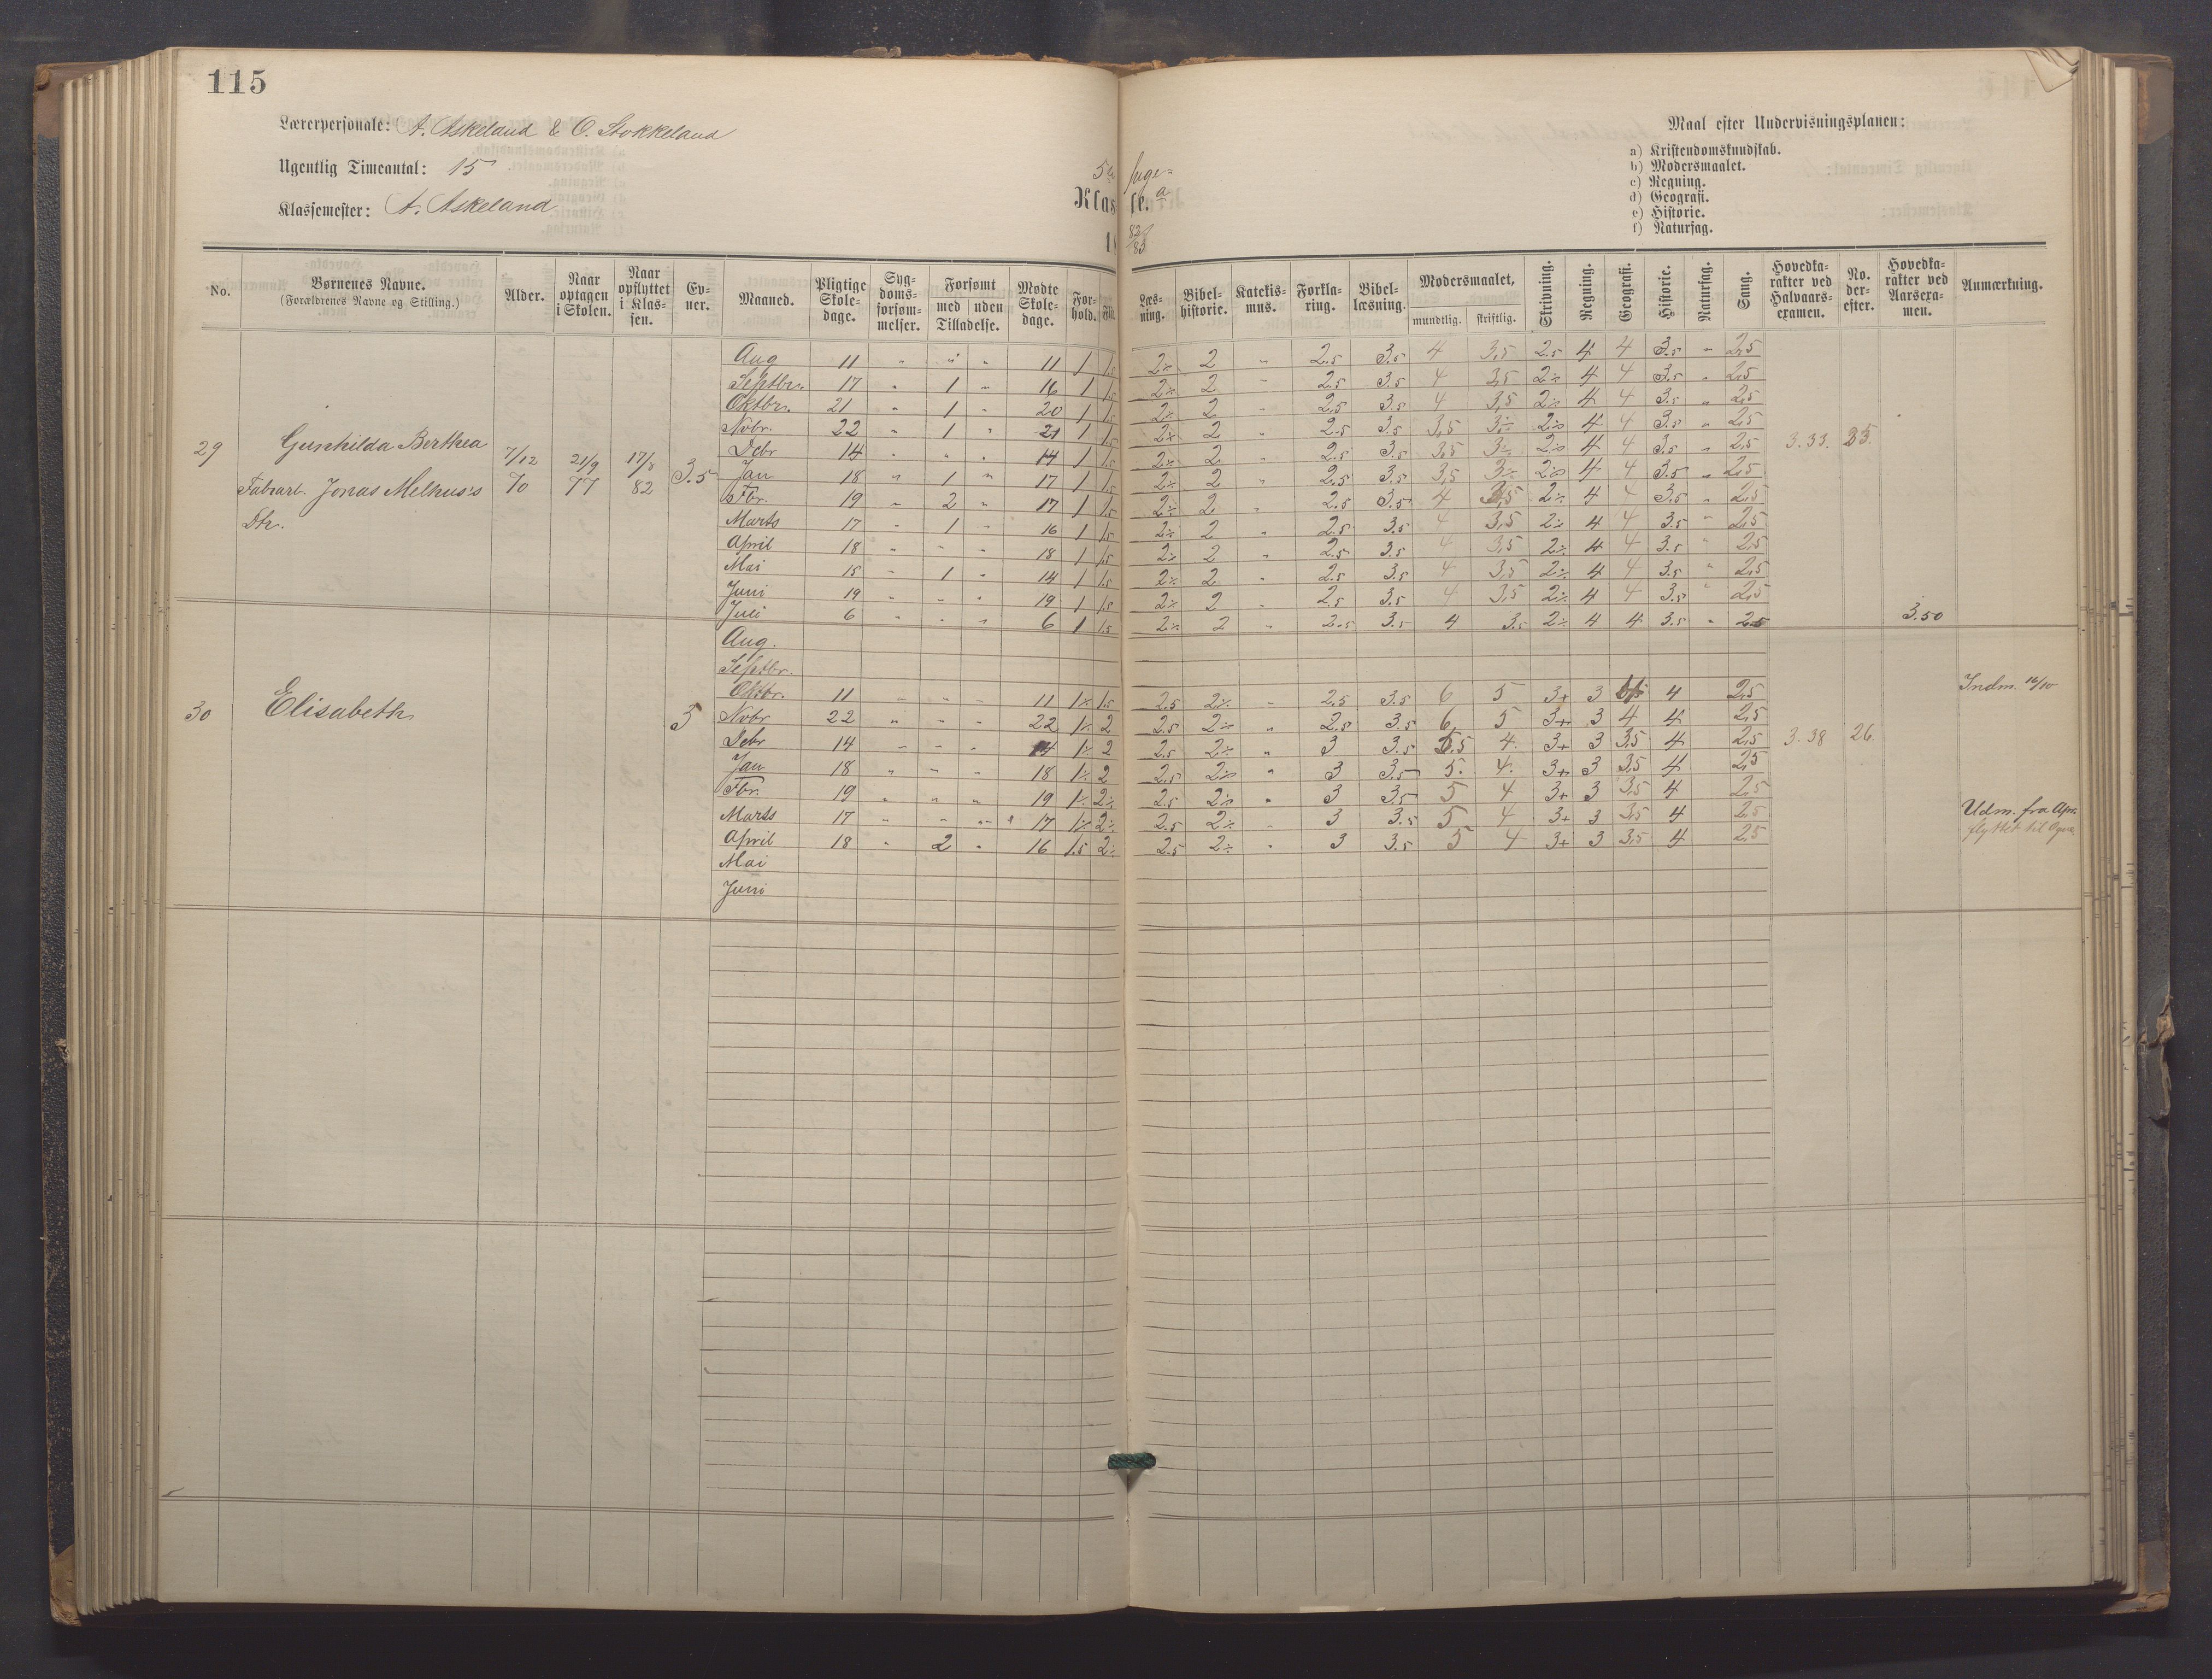 115
Lærerpersonale: A. Askeland & O. Stokkeland
Ugentlig Timeantal: 15
Klassemester: A. Askeland
Klasse. a
18 82/83
Maal efter Undervisningsplanen:
a) Kristendomskundskab.
b) Modersmaalet.
c) Regning.
d) Geografi.
e) Historie.
f) Naturfag.
No. | Børnenes Navne. (Forældrenes Navne og Stilling.) | Alder. | Naar optagen i Skolen. | Naar opflyttet i Klassen. | Evner. | Maaned. | Pligtige Skoledage. | Sygdomsforsømmelser. | Forsømt med uden Tilladelse. | Mødte Skoledage. | Forhold. | Læsning. | Bibelhistorie. | Katekismus. | Forklaring. | Bibellæsning. | Modersmaalet, mundtlig. skriftlig. | Skrivning. | Regning. | Geografi. | Historie. | Naturfag. | Sang. | Hovedkarakter ved Halvaarsexamen. | No. derefter. | Hovedkarakter ved Aarsexamen. | Anmærkning.
29 Gunhilda Berthea 7/12 70 21/9 77 17/8 82 3.5
Fabrarb. Jonas Melhus's
Dtr.
Aug 11 " " " 11 1 1.5 2÷ 2 " 2.5 3.5 4 3,5 2.5 4 4 3.5 " 2,5
Septbr. 17 " 1 " 16 1 1.5 2÷ 2 " 2.5 3.5 4 3,5 2÷ 4 4 3.5 " 2,5
Oktbr. 21 " 1 " 20 1 1.5 2÷ 2 " 2.5 3.5 4 3,5 2÷ 4 4 3.5 " 2,5
Nvbr. 22 " 1 " 21 1 1.5 2÷ 2 " 2.5 3.5 3,5 3÷ 2÷ 4 4 3.5 " 2,5 3.33. 25.
Debr 14 " " " 14 1 1.5 2÷ 2 " 2.5 3.5 3,5 3÷ 2÷ 4 4 3.5 " 2,5
Jan 18 " 1 " 17 1 1.5 2÷ 2 " 2.5 3.5 3,5 3÷ 2÷ 4 4 3.5 " 2,5
Fbr. 19 " 2 " 17 1 1.5 2÷ 2 " 2.5 3.5 4 3,5 2÷ 4 4 3.5 " 2,5
Marts 17 " 1 " 16 1 1.5 2÷ 2 " 2.5 3.5 4 3,5 2÷ 4 4 3.5 " 2,5
April 18 " " " 18 1 1.5 2÷ 2 " 2.5 3.5 4 3,5 2÷ 4 4 3.5 " 2,5
Mai 15 " 1 " 14 1 1.5 2÷ 2 " 2.5 3.5 4 3,5 2÷ 4 4 3.5 " 2,5
Juni 19 " " " 19 1 1.5 2÷ 2 " 2.5 3.5 4 3,5 2÷ 4 4 3.5 " 2,5
Juli 6 " " " 6 1 1.5 2÷ 2 " 2.5 3.5 4 3.5 2÷ 4 4 3.5 " 2.5 3.50
30 Elisabeth 3
Aug.
Septbr.
Oktbr. 11 " " " 11 1÷ 1.5 2.5 2÷ " 2.5 3.5 6 5 3+ 3 4 2,5 Indm. 16/10
Nvbr 22 " " " 22 1÷ 2 2.5 2÷ " 2.5 3.5 6 5 3+ 3 4 4 2,5
Debr 14 " " " 14 1÷ 2 2.5 2÷ " 3 3.5 5.5 4. 3+ 3 3,5 4 2,5 3.38 26
Jan 18 " " " 18 1÷ 2 2.5 2÷ " 3 3.5 5. 4. 3+ 3 3,5 4 2,5
Fbr. 19 " " " 19 1÷ 2÷ 2.5 2÷ " 3 3.5 5 4 3+ 3 3,5 4 2,5
Marts 17 " " " 17 1÷ 2÷ 2.5 2÷ " 3 3.5 5 4 3+ 3 3,5 4 2,5 Udm. fra Apr.
April 18 " 2 " 16 1.5 2÷ 2.5 2÷ " 3 3.5 5 4 3+ 3 3,5 4 2,5 flyttet til
Mai
Juni